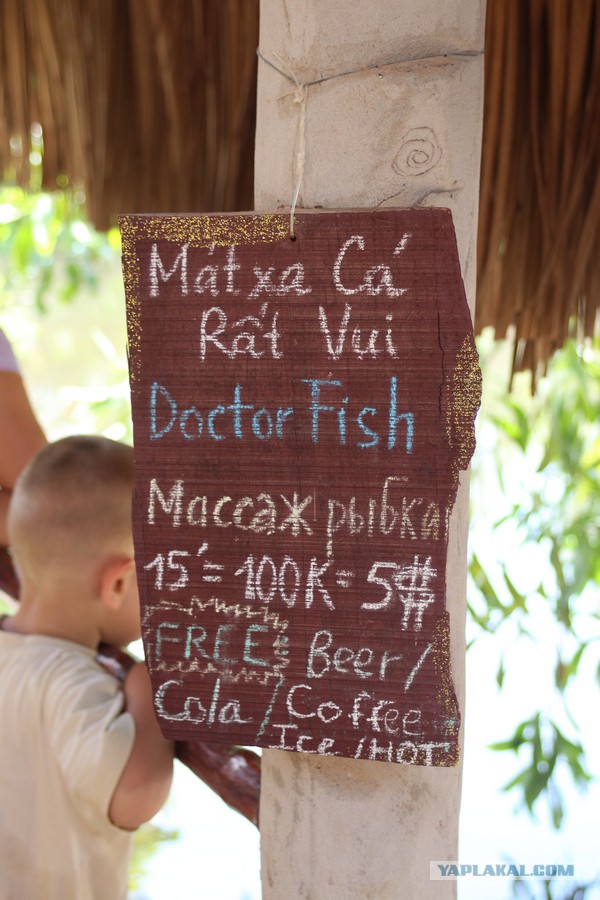 Mátxa Cá
Rất Vui
Doctor Fish
Массаж рыбка
15'= 100K = 5$
FREE Beer/
Cola / Coffee
Ice /HOT
YAPLAKAL.COM